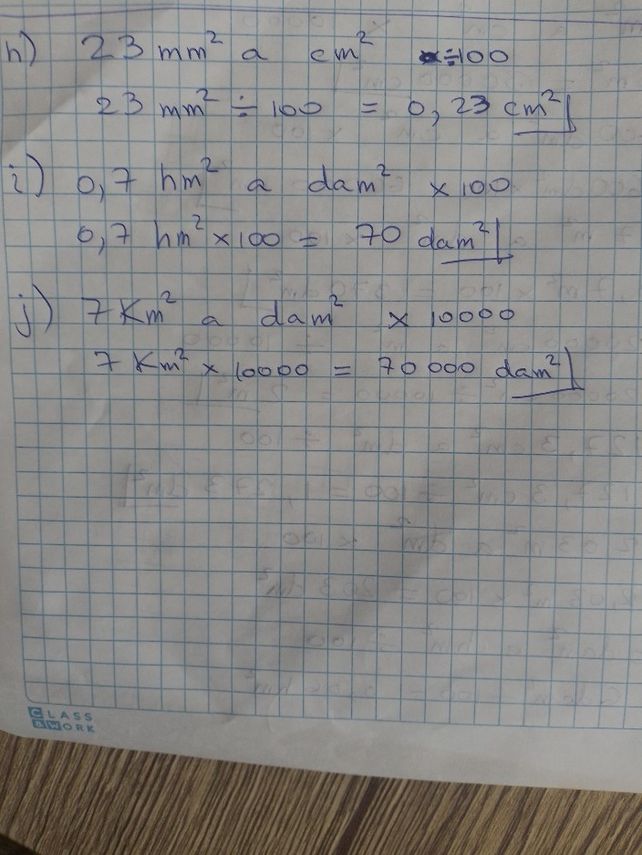 h) 23 mm² a cm² ÷100
23 mm² ÷ 100 = 0,23 cm²
i) 0,7 hm² a dam² x100
0,7 hm² x100 = 70 dam²
j) 7 Km² a dam² x 10000
7 Km² x 10000 = 70 000 dam²
CLASS
&WORK